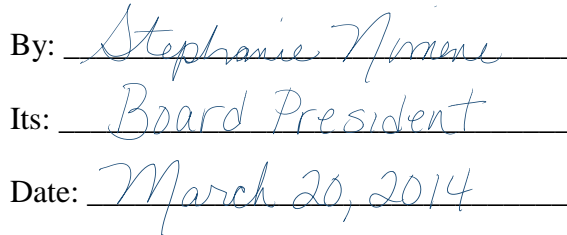 By: Stephanie Nimene
Its: Board President
Date: March 20, 2014